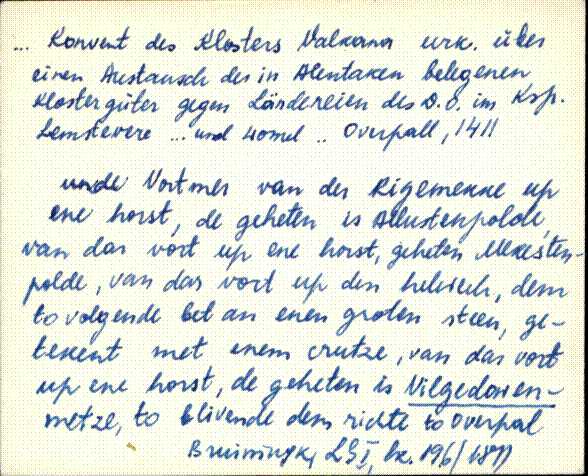 ... Konvent des Klosters Valkena urk. über
einen Austausch des in Alentaken belegenen
Klostergüter gegen Ländereien des D. O. im Ksp.
Lemsevere ... und Womel .. Overpall, 1411
unde Vortmer van der Rigemekke up
ene horst, de geheten is Allustenpolde,
van dar vort up ene horst, geheten Mekesten-
polde, van dar vort up den helwech, dem
to volgende bet an enen groten steen, ge-
tekent met enem crutze, van dar vort
up ene horst, de geheten is Vilgedowen-
metze, to blivende dem richte to Overpal
LG I, lk. 196/1411